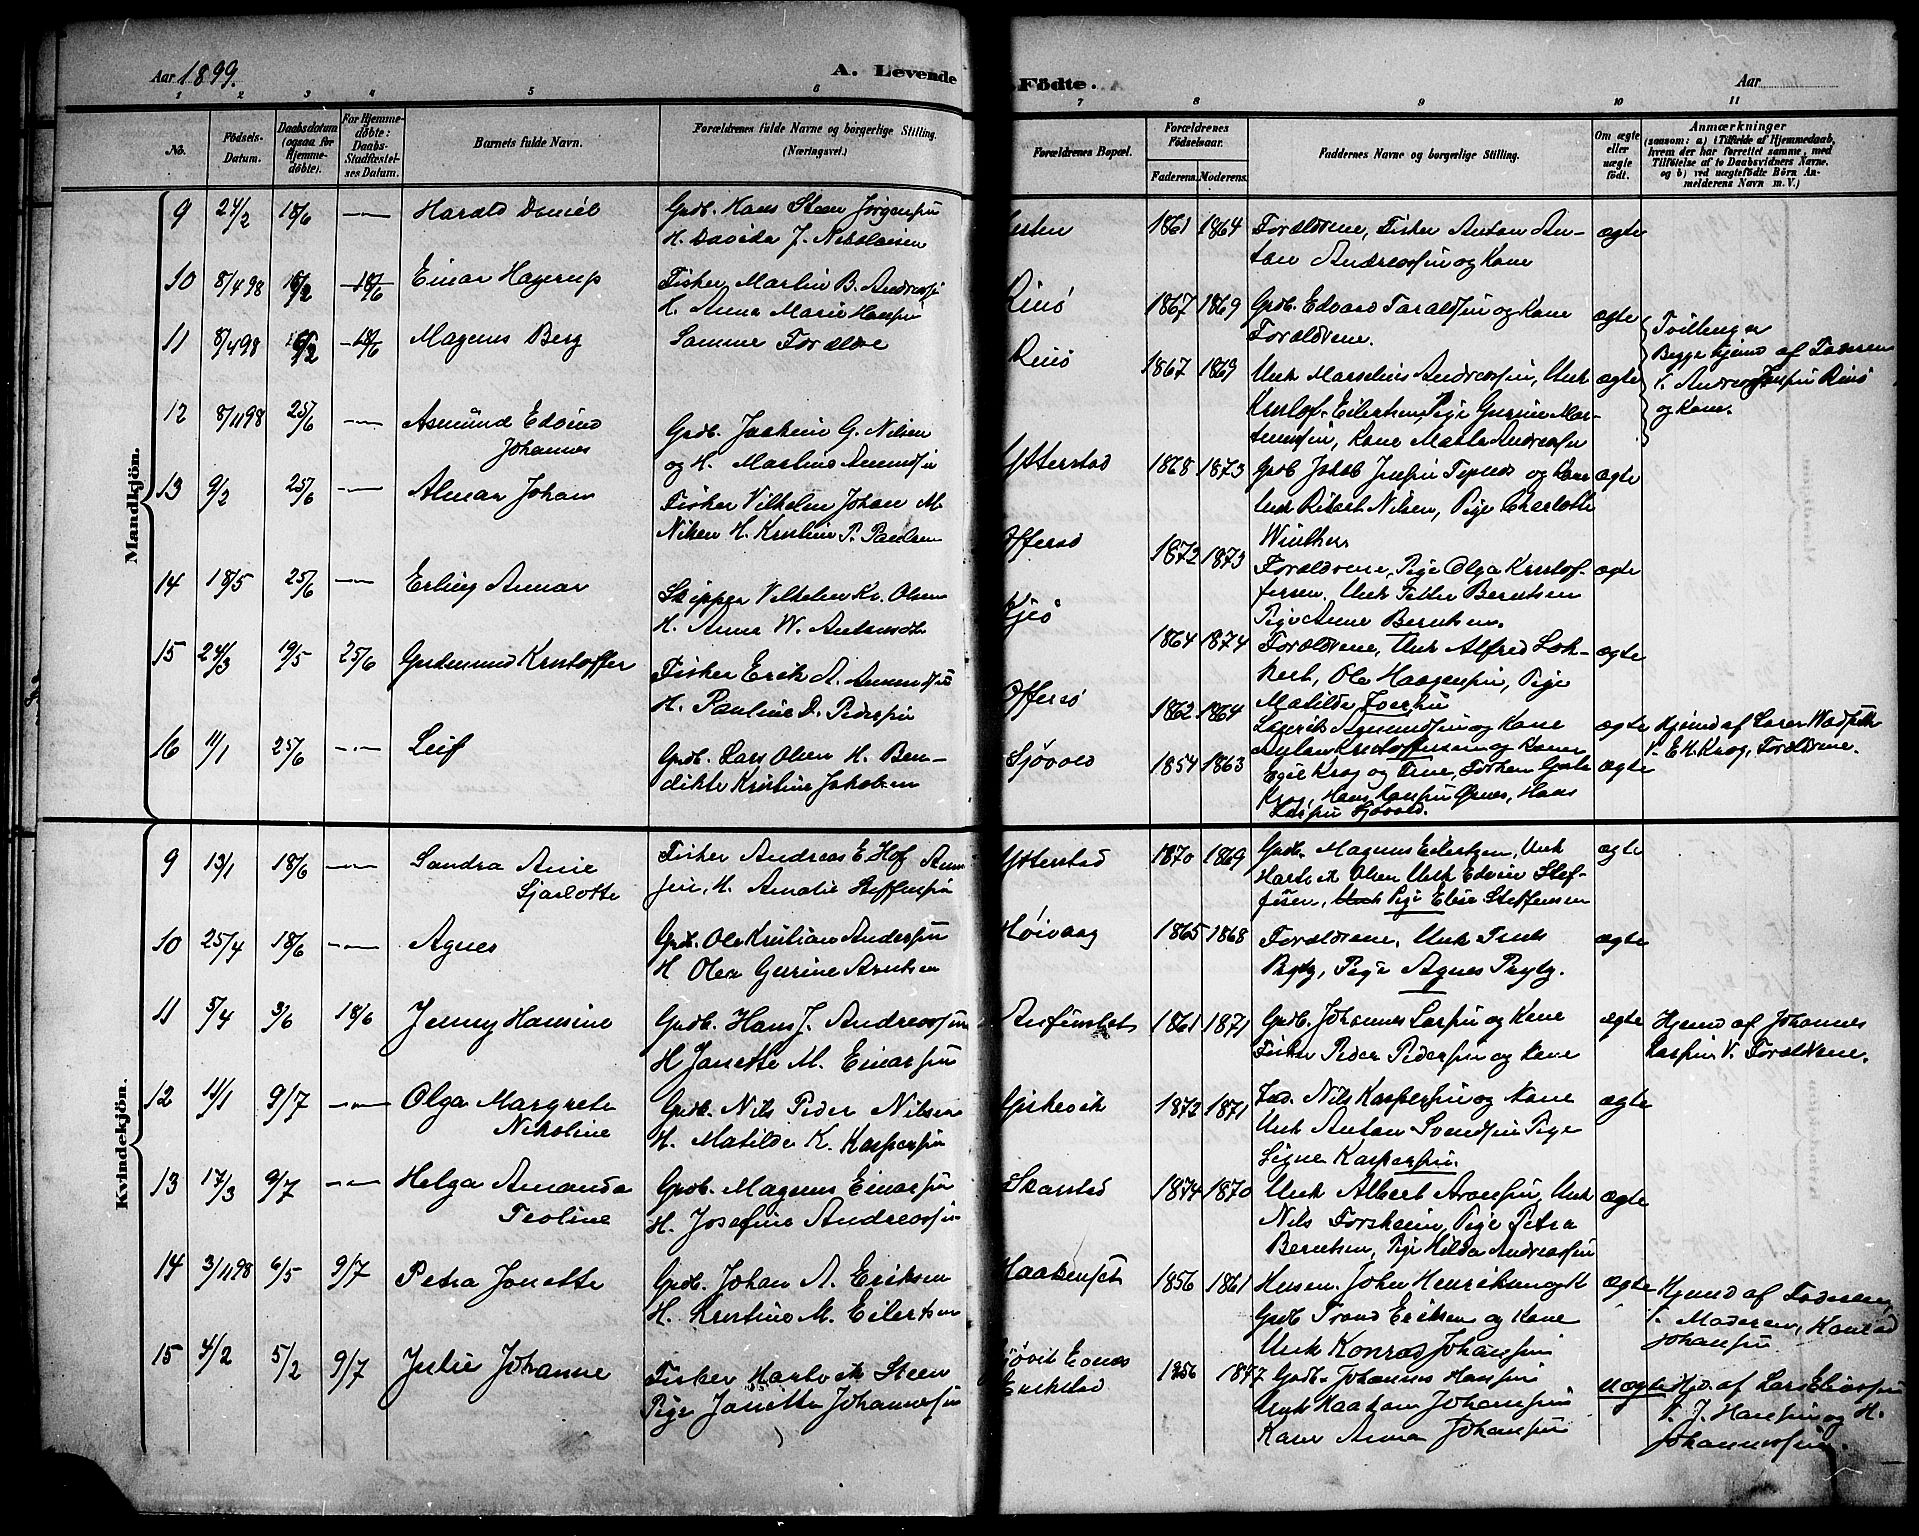 Aar 1899.
A. Levende Födte.
Aar
1 2 3 4 5 6 7 8 9 10 11
No.
Födsels-
Datum.
Daabsdatum
(ogsaa for
Hjemme-
döbte).
For Hjemme-
döbte:
Daabs-
Stadfæstel-
ses Datum.
Barnets fulde Navn.
Forældrenes fulde Navne og borgerlige Stilling.
(Næringsvei.)
Forældrenes Bopæl.
Forældrenes
Födselsaar.
Faderens. Moderens.
Faddernes Navne og borgerlige Stilling.
Om ægte
eller
uægte
födt.
Anmærkninger
(saasom: a) i Tilfælde af Hjemmedaab,
hvem der har forrettet samme, med
Tilföielse af to Daabsvidners Navne,
og b) ved uægtefödte Börn An-
melderens Navn m. V.)
Mandkjön.
9 24/2 18/6 — Harald Daniel
Grdb. Hans Steen Jørgensen
H. Davida J. Nikolaisen
1861 1864
Forældrene, Fisker Anton An-
ton Andreassen og Kone
ægte
10 8/4 98 18/6 Einar Hagerup
Fisker Martin B. Andreassen
H. Anna Marie Hansen
Rinø 1867 1869
Grdb. Edvard Taraldsen og Kone
Forældrene.
ægte
11 8/4 98 18/6 Magnus Berg
Samme Forældre
Rinø 1867 1869
Unk Marselius Andreassen, Unk
Kristof. Eilertsen, Pige Gurine Mar-
tinussen, Kone Marta Andreassen
ægte
Tvillinger
Begge hjemd af Faderen
V. Andreas Jensen Rinø
og Kone.
12 8/11 98 25/6 — Asmund Edvind
Johannes
Grdb. Joakim G. Nilsen
og H. Martine Amundsen
Ytterstad 1868 1873
Grdb Jakob Jensen og Kone
Unk Rikart Nilsen, Pige Charlotte
Winther
ægte
13 9/2 25/6 — Almar Johan
Fisker Vilhelm Johan M.
Nilsen H. Kristine P. Paulsen
Offersø 1872 1873
Forældrene, Pige Olga Kristof-
fersen, Unk Petter Berntsen
Pige Anne Berntsen.
ægte
14 18/5 25/6 — Erling Annar
Skipper Vilhelm Kr. Olsen
H. Anna W. Antonsdt.
Kjeø 1864 1874
Forældrene, Unk Alfred Lok-
kert, Ole Haagensen, Pige
Matilde
ægte
15 24/3 19/5 25/6 Gudmund Kristoffer
Fisker Erik A. Amundsen
H. Pauline D. Pedersen
Offersø 1862 1864
Lauritz Amundsen og Kone
Kristoffersen og Kone
ægte
Hjemd af Lærer
V. E.H. Krog, Forældrene.
16 11/1 25/6 — Leif
Grdb. Lars Olsen H. Ben-
dikte Kristine Jakobsen
Sjøvold 1854 1863
Egil Krog og Frue, Frøken
Krog, Hans Hansen, Hans
Larsen Sjøvold.
ægte
Kvindekjön.
9 13/1 18/6 — Sandra Anie
Sjarlotte
Fisker Andreas E. Hof
H. Amalie Steffensen
Ytterstad 1870 1869
Grdb. Magnus Eilertsen, Unk
Hartvik Olsen Unk Edvin Stef-
fensen, Pige Elise Steffensen
ægte
10 25/4 18/6 — Agnes
Grdb. Ole Kristian Andersen
H Olea Gurine Arntsen
Høivaag 1865 1868
Forældrene, Unk
Pige Agnes
ægte
11 5/4 3/6 18/6 Jenny Hansine
Grdb. Hans J. Andreassen
H Janette M. Einarsen
1861 1871
Grdb. Johannes Larsen og Kone
Fisker Peder Pedersen og Kone
ægte
Hjemd af Johannes
Larsen V. Forældrene.
12 11/1 9/7 — Olga Margrete
Nikoline
Grdb. Nils Peder Nilsen
H. Matilde K. Kaspersen
Giskevik 1872 1871
Nils Kaspersen og Kone
Unk Anton Svendsen Pige
Signe Kaspersen.
ægte
13 17/3 9/7 — Helga Amanda
Teoline
Grdb. Magnus Einarsen
H. Josefine Andreassen
Skarstad 1874 1870
Unk Albert Aronsen, Unk
Nils Forsheim, Pige Petra
Berntsen, Pige Hilda Andreassen
ægte
14 3/11 98 6/5 9/7 Petra Jonette
Grdb. Johan A. Eriksen
H. Kristine M. Eilertsen
Haakenset 1856 1861
Husm. John Henriksen og H
Grdb Trond Eriksen og Kone
Unk Konrad Johansen
ægte
Hjemd af Faderen,
V. Moderen, Konrad
Johansen
15 4/2 5/2 9/7 Julie Johanne
Fisker Hartvik Steen
Pige Janette Johannessen
1856 1877
Grdb. Johannes Hansen
Unk Haakon Johansen
Kone Anna Johansen
uægte
Hjd. af Lars Eliassen
V. J. Hansen og H.
Johannessen.